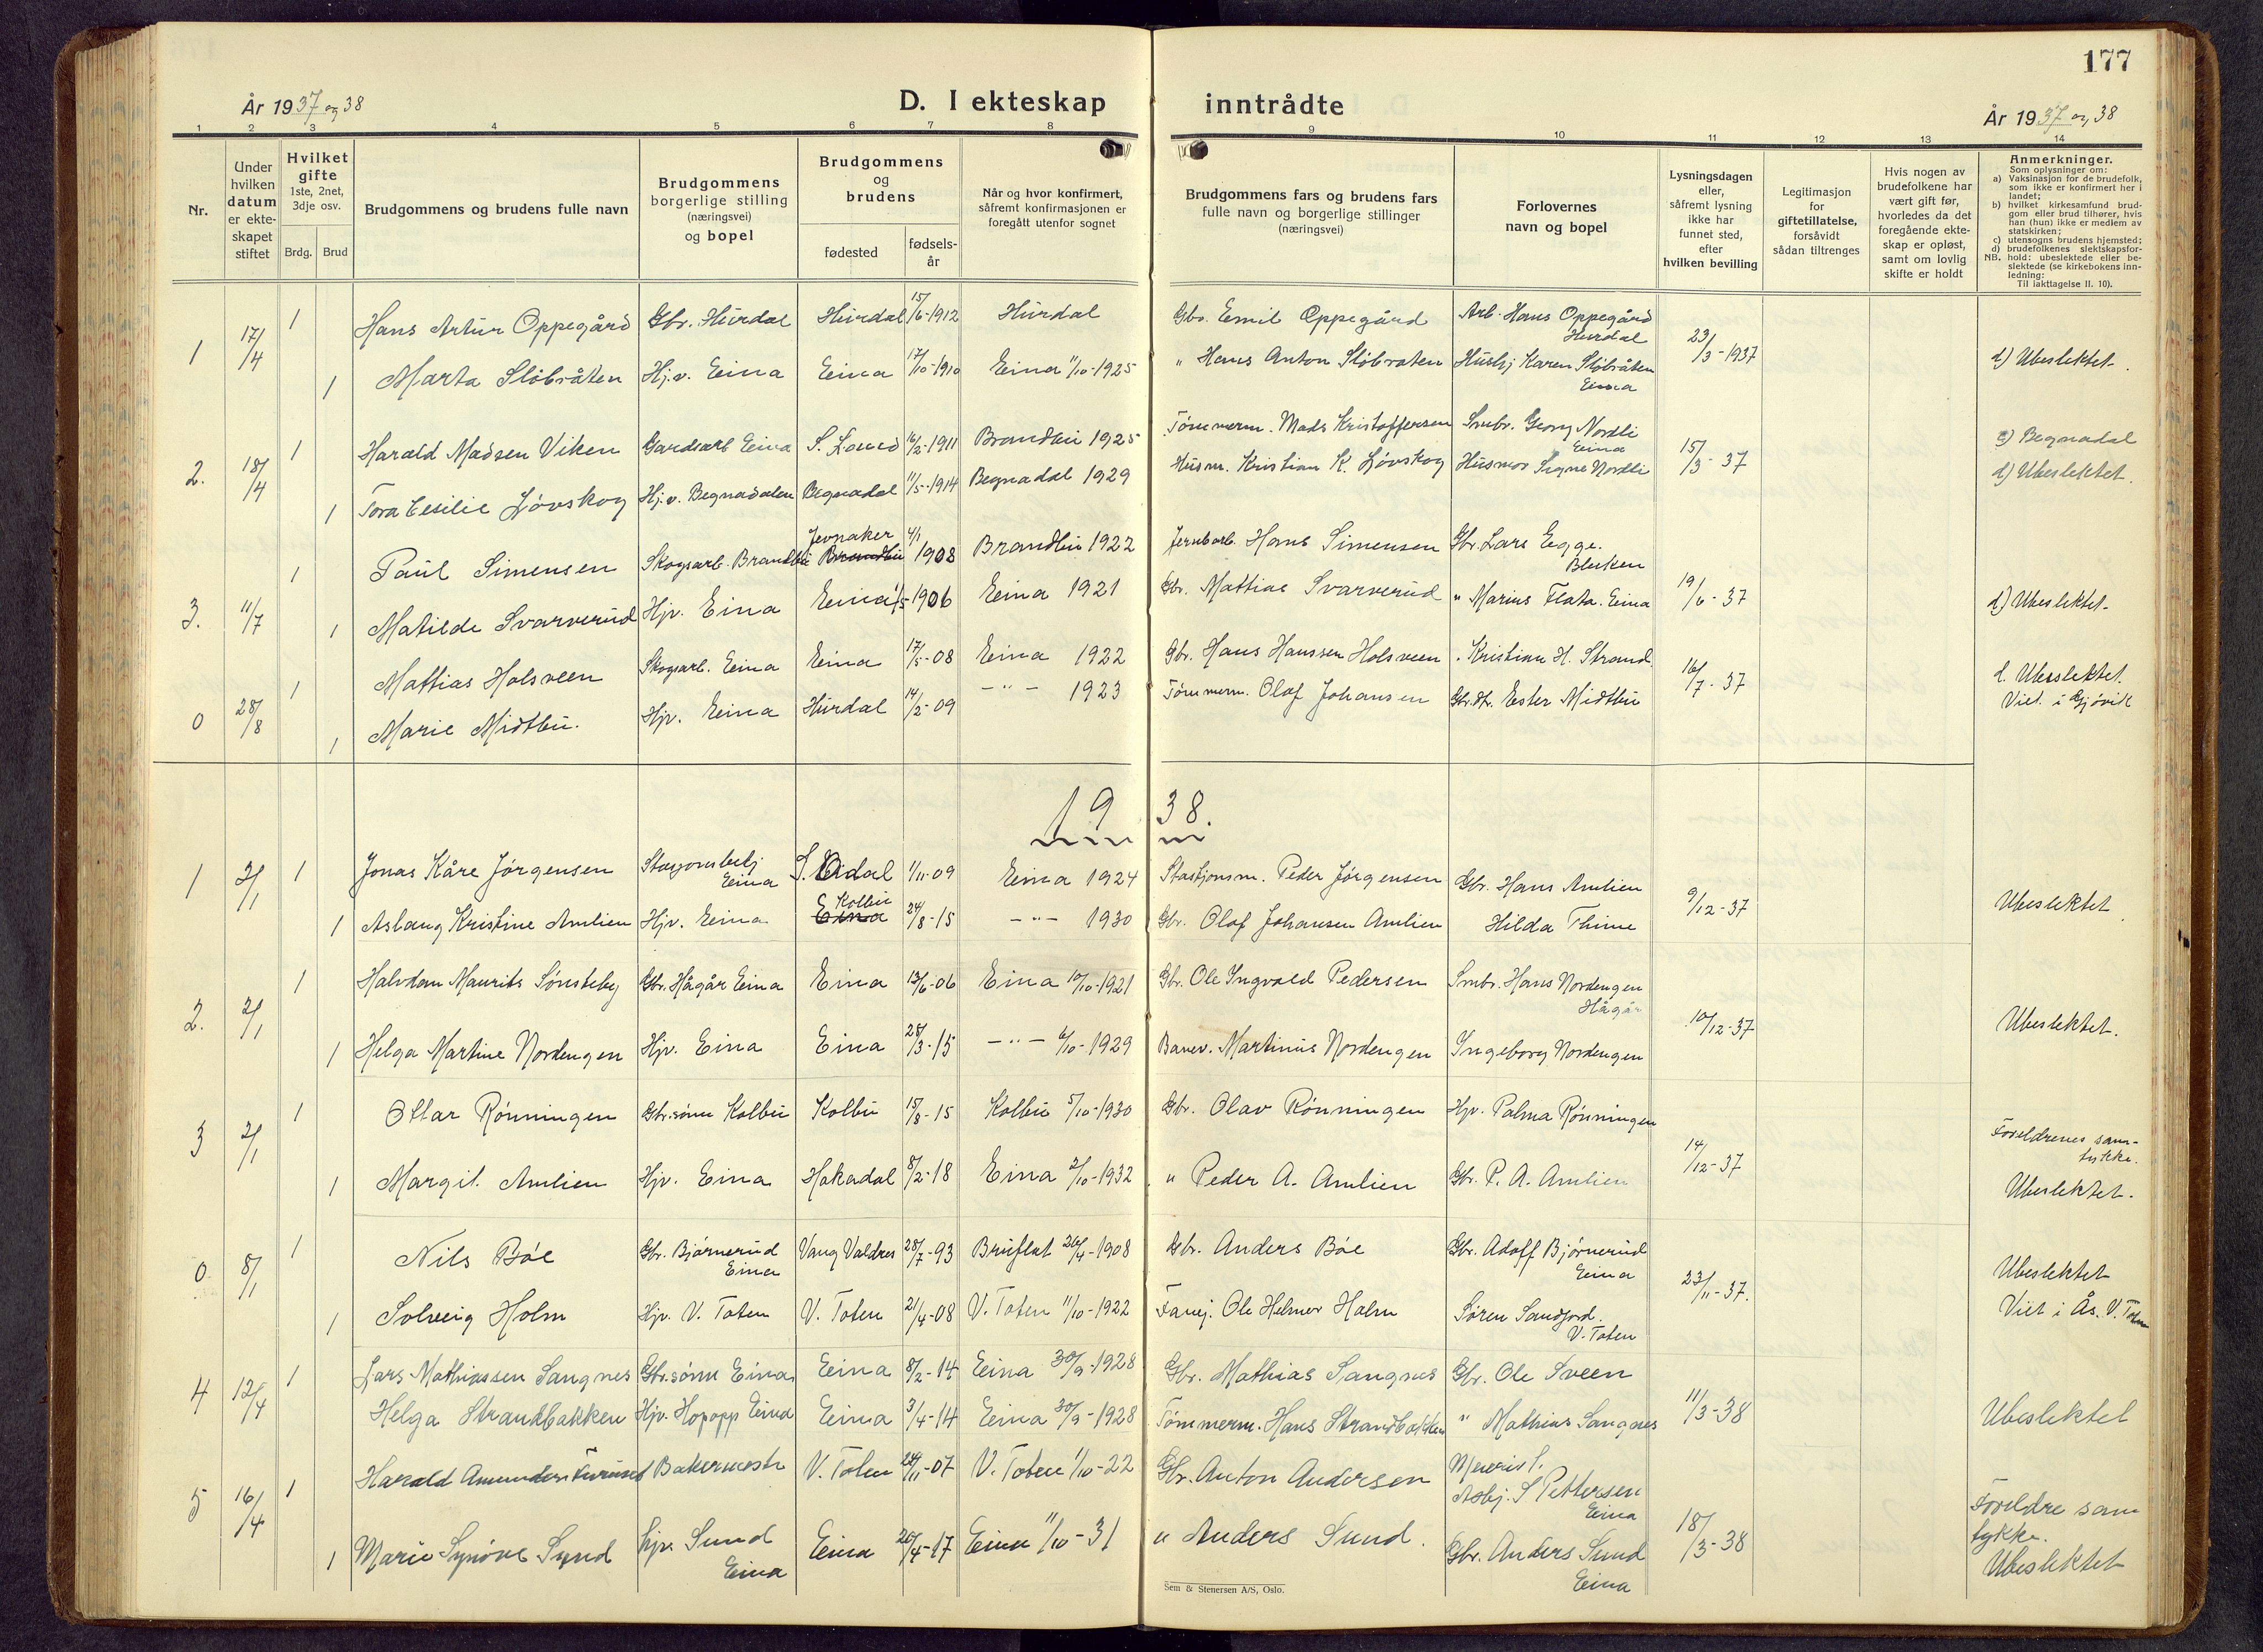 177
År 1937 og 38
D. I ekteskap inntrådte
År 1937 og 38
1 2 3 4 5 6 7 8 9 10 11 12 13 14
Nr.
Under hvilken datum er ekteskapet stiftet
Hvilket gifte 1ste, 2net, 3dje osv.
Brdg. Brud
Brudgommens og brudens fulle navn
Brudgommens borgerlige stilling (næringsvei) og bopel
Brudgommens og brudens
fødested
fødselsår
Når og hvor konfirmert, såfremt konfirmasjonen er foregått utenfor sognet
Brudgommens fars og brudens fars fulle navn og borgerlige stillinger (næringsvei)
Forlovernes navn og bopel
Lysningsdagen eller, såfremt lysning ikke har funnet sted, efter hvilken bevilling
Legitimasjon for giftetillatelse, forsåvidt sådan tiltrenges
Hvis nogen av brudefolkene har vært gift før, hvorledes da det foregående ekteskap er opløst, samt om lovlig skifte er holdt
Anmerkninger.
Som oplysninger om:
a) Vaksinasjon for de brudefolk, som ikke er konfirmert her i landet;
b) hvilket kirkesamfund brudgom eller brud tilhører, hvis han (hun) ikke er medlem av statskirken;
c) utensogns brudens hjemsted;
d) brudefolkenes slektskapsforhold: ubeslektede eller beslektede (se kirkebokens innledning:
NB.
Til iakttagelse II. 10).
1 17/4 1 Hans Artur Oppegård Gbr. Hurdal Hurdal 15/6-1912 Hurdal Gbr. Emil Oppegård Arb. Hans Oppegård Hurdal 23/3-1937 d) Ubeslektet.
1 Marta Slöbråten Hj.v. Eina Eina 17/10-1910 Eina 11/10-1925 " Hans Anton Slöbraten Hushj Karen Slöbråten Eina
2. 18/4 1 Harald Madsen Viken Gardsarb Eina S. Land 16/2-1911 Brandbu 1925 Tømmerm. Mads Kristoffersen Smbr. Georg Nordli Eina 15/3-37 c) Begnadal
1 Tora Cesilie Løvskog Hj.v. Begnadalen Begnadal 11/5-1914 Begnadal 1929 Husm. Kristian K. Løvskog Husmor Signe Nordli d) Ubeslektet.
3. 11/7 1 Paul Simensen Skogsarb. Brandbu Jevnaker Brandbu 4/1 1908 Brandbu 1922 Jernbarb. Hans Simensen Gbr. Lars Egge. Bleiken 19/6-37 d) Ubeslektet.
1 Matilde Svarverud Hjv. Eina Eina 1906 Eina 1921 Gbr. Mattias Svarverud " Marius Flata. Eina
0 28/8 1 Mattias Holsveen Skogsarb. Eina Eina 17/5-08 Eina 1922 Gbr. Hans Hanssen Holsveen " Kristian H. Strand. 16/7-37 d. Ubeslektet.
1 Marie Midtbu. Hjv. Eina Hurdal 14/2-09 -"- 1923 Tømmerm. Olaf Johansen Gbr.dtr. Ester Midtbu Viet. i Gjøvik
1938.
1 2/1 1 Jonas Kåre Jørgensen Stasjonsbetj Eina S. Odal 1/11-09 Eina 1924 Stasjonsm. Peder Jørgensen Gbr. Hans Amlien 9/12-37 Ubeslektet
1 Aslaug Kristine Amlien Hjv. Eina Kolbu Eina 24/8-15 -"- 1930 Gbr. Olaf Johansen Amlien Hilda Thune
2. 2/1 1 Halvdan Maurits Sønsteby Gbr. Hågår Eina Eina 13/6-06 Eina 10/10-1921 Gbr. Ole Ingvald Pedersen Smbr. Hans Nordengen Hågår 10/12-37 Ubeslektet.
1 Helga Martine Nordengen Hjv. Eina Eina 28/3-15 -"- 6/10-1929 Banev. Martinus Nordengen Ingeborg Nordengen
3 2/1 1 Ottar Rønningen Gbr.sønn Kolbu Kolbu 15/8-15 Kolbu 5/10-1930 Gbr. Olav Rønningen Hjv. Palma Rønningen 14/12-37 Foreldrenes samtykke.
1 Margit Amlien Hjv. Eina Hakadal 8/2-18 Eina 2/10-1932 " Peder A. Amlien Gbr. P. A. Amlien Ubeslektet.
0 8/1 1 Nils Bøe Gbr. Bjørnerud Eina Vang Valdres 28/7-93 Bruflat 26/4-1908 Gbr. Anders Bøe Gbr. Adolf Bjørnerud Eina 23/11-37. Ubeslektet
1 Solveig Holm Hjv. V. Toten V. Toten 21/4-08 V. Toten 11/10-1922 Ole Helmer Holm Søren Sandjord. V. Toten Viet i Ås. V. Toten
4 12/4 1 Lars Mathiassen Sangnes Gbr.sønn Eina Eina 8/2-14 Eina 30/9-1928 Gbr. Mathias Sangnes Gbr. Ole Sveen 11/3-38 Ubeslektet
Helga Strandbakken Hjv. Hopopp Eina Eina 3/4-14 Eina 30/9-1928 Tømmerm. Hans Strandbakken " Mathias Sangnes
5 16/4 1 Harald Amundsen Furuset Bakermestr V. Toten 24/11-07 V. Toten 1/10-22 Gbr. Anton Andersen Meierist. Asbj. S Pettersen Eina 18/3-38 Foreldre samtykke.
1 Marie Synøve Sund hjv. Sund Eina Eina 26/4-17 Eina 11/10-31 " Anders Sund. Gbr. Anders Sund Eina Ubeslektet
Sem & Stenersen A/S, Oslo.